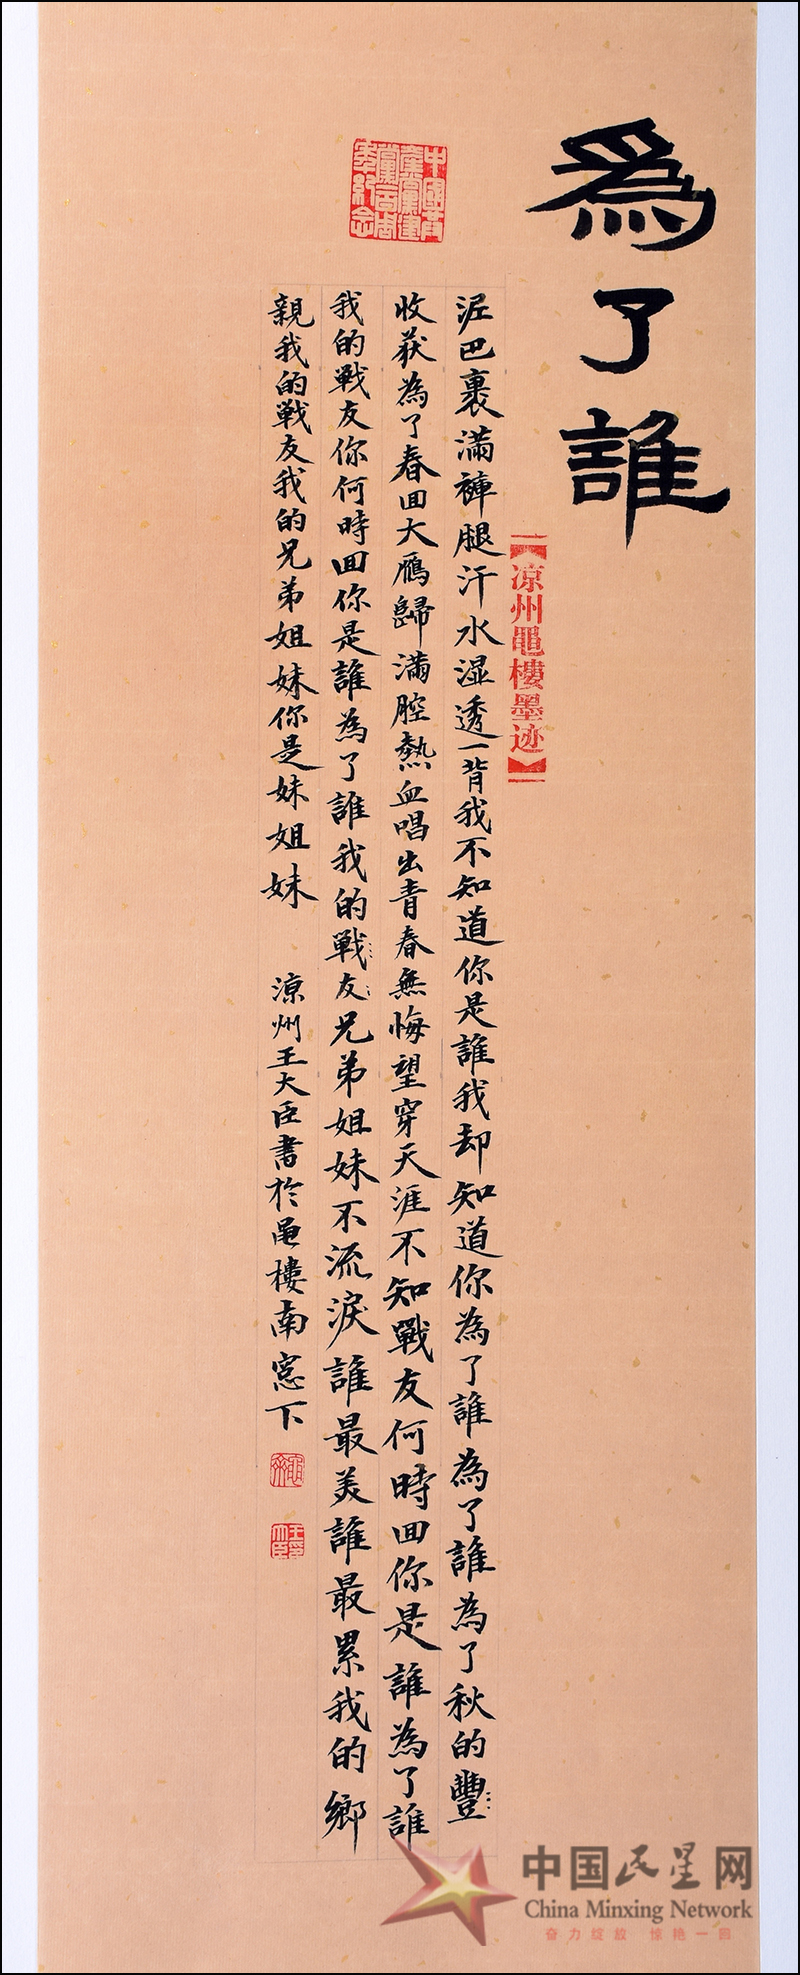 為了誰
【凉州黽樓墨迹】
泥巴裹滿褲腿汗水湿透一背我不知道你是誰我却知道你為了誰為了誰為了秋的豐
收获為了春回大雁歸滿腔熱血唱出青春無悔望穿天涯不知戰友何時回你是誰為了誰
我的戰友你何時回你是誰為了誰我的戰友兄弟姐妹不流淚誰最美誰最累我的鄉
親我的戰友我的兄弟姐妹你是妹姐妹
凉州王大臣書於黽樓南窓下
中國共產黨建黨百周年紀念
中国民星网
China Minxing Network
奋力绽放 惊艳一回